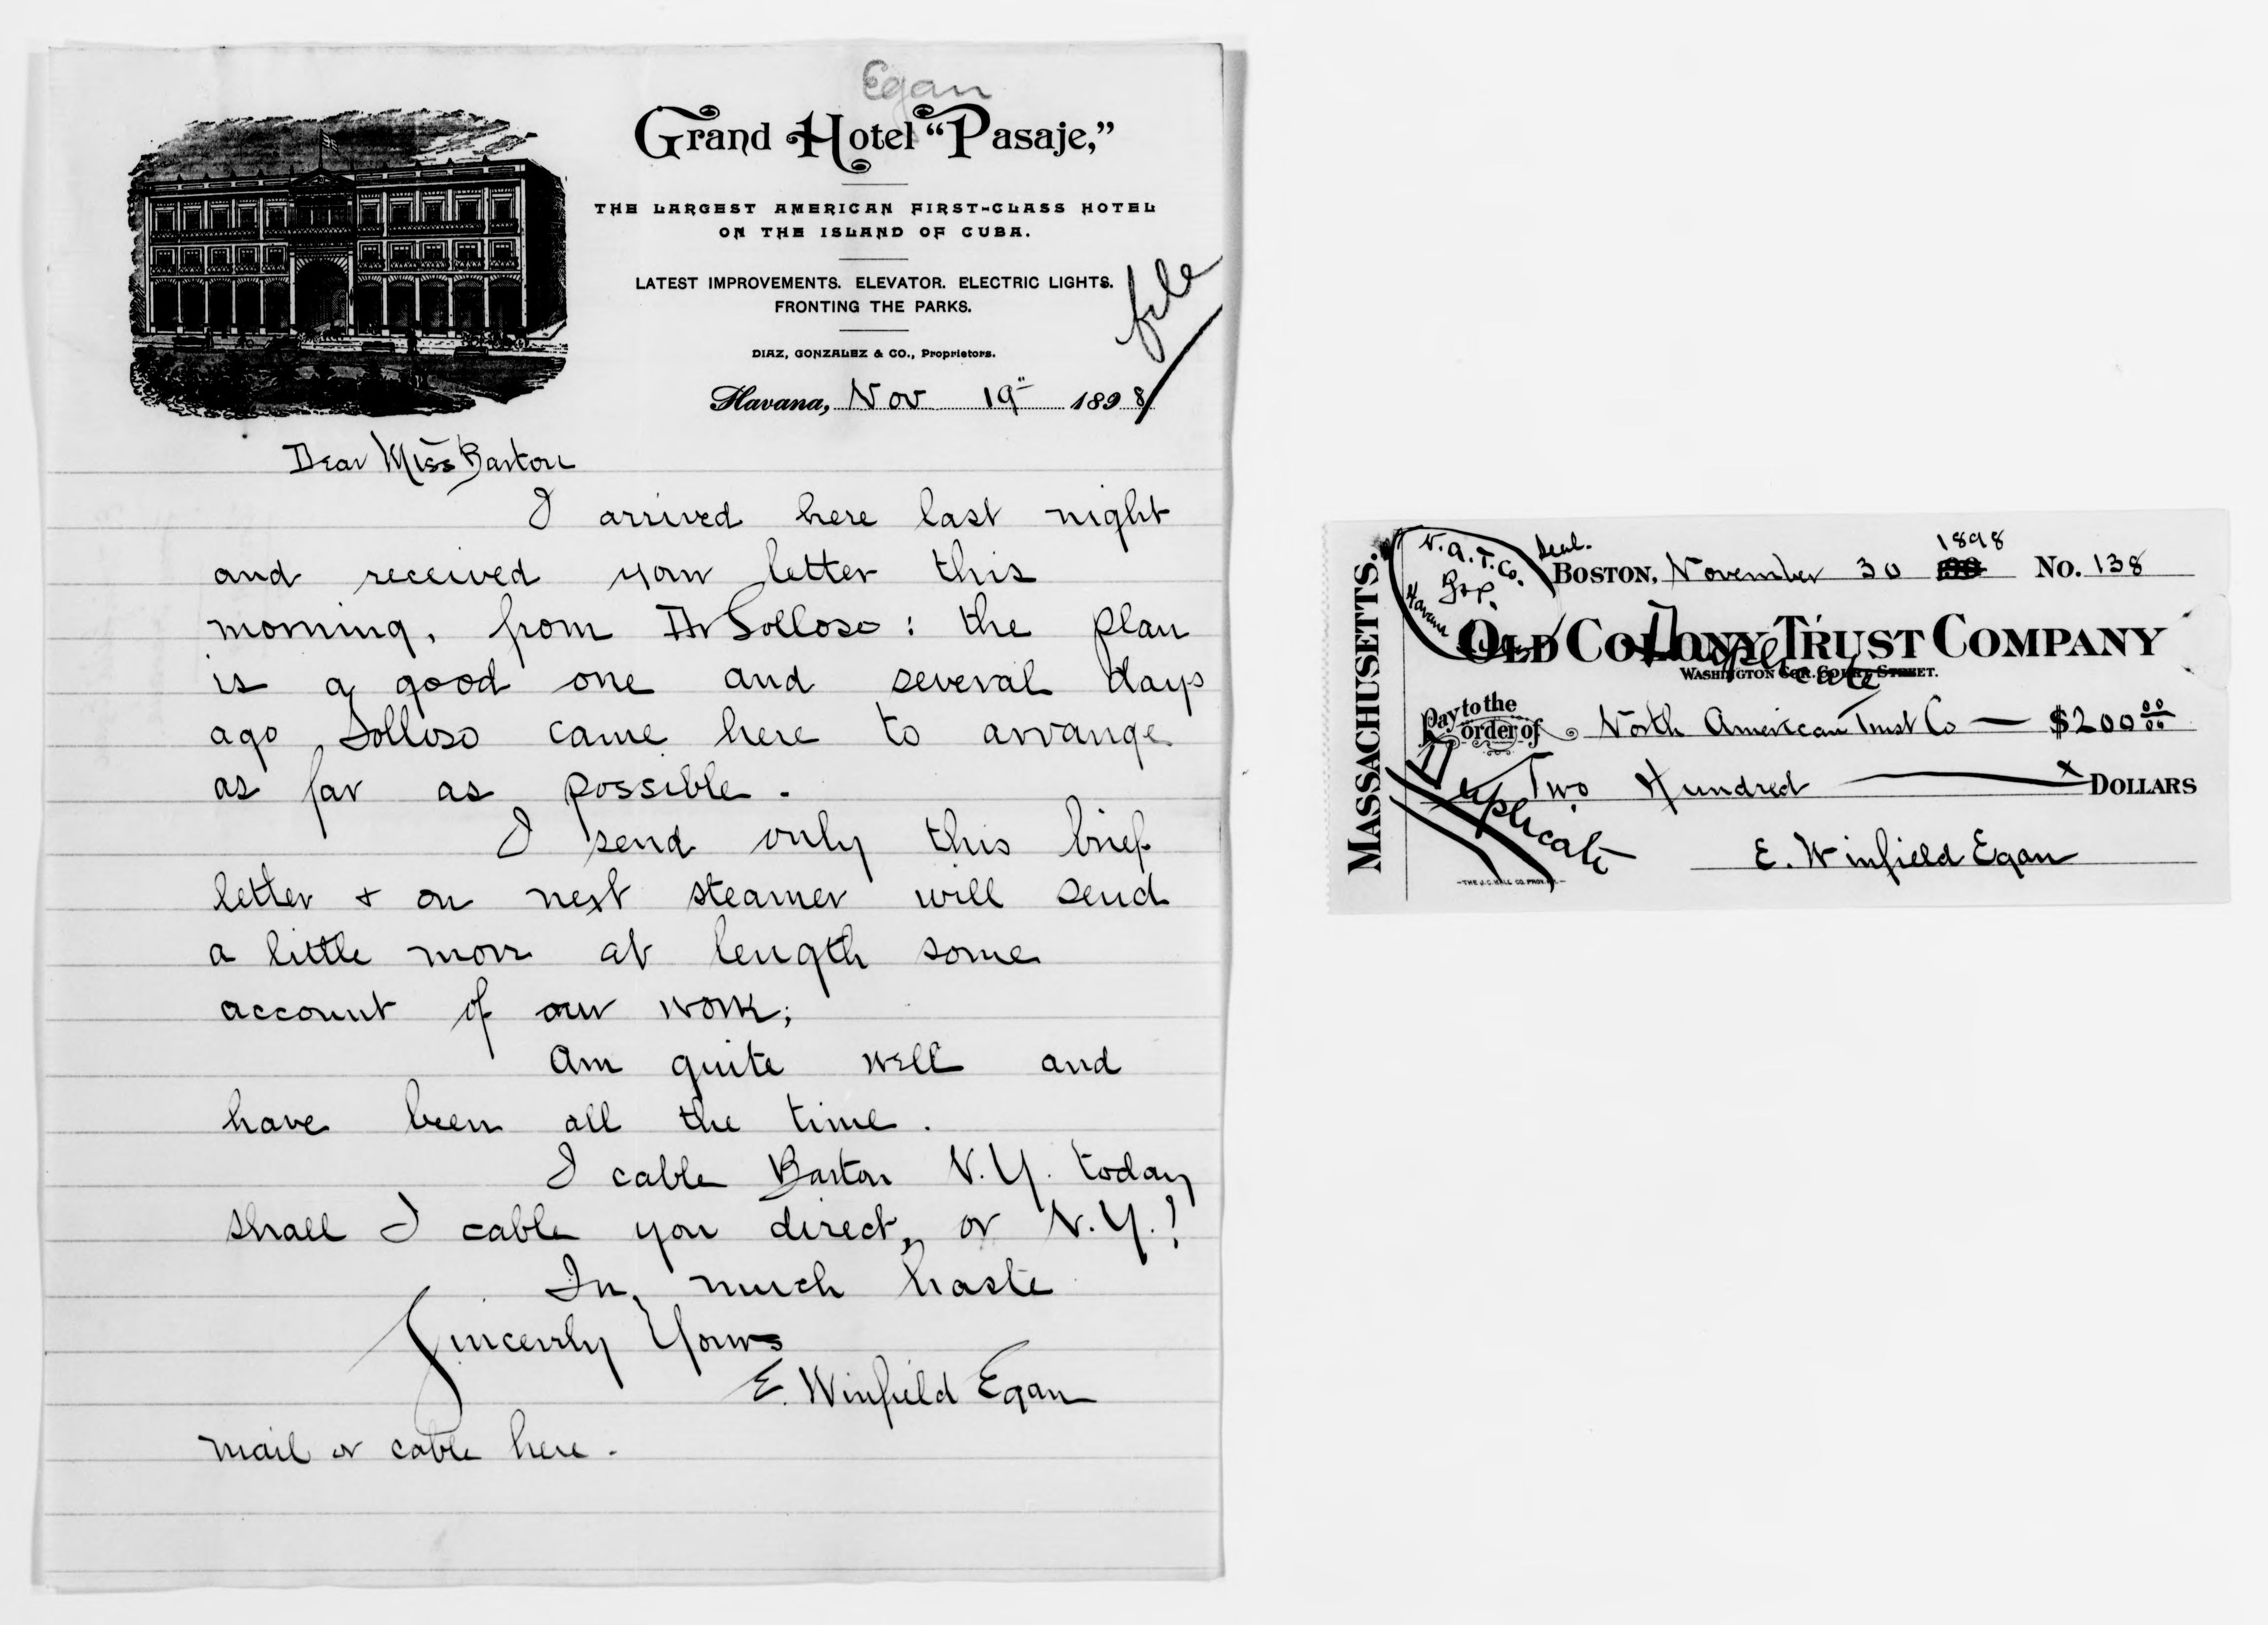 Egan
Grand Hotel “Pasaje,”
THE LARGEST AMERICAN FIRST-CLASS HOTEL
ON THE ISLAND OF CUBA.
LATEST IMPROVEMENTS. ELEVATOR. ELECTRIC LIGHTS.
FRONTING THE PARKS.
file
DIAZ, GONZALEZ & CO., Proprietors.
Havana, Nov 19" 1898
Dear Miss Barton
I arrived here last night
and received your letter this
morning, from Dr Solloso : the plan
is a good one and several days
ago Solloso came here to arrange
as far as possible.
I send only this brief
letter & on next steamer will send
a little more at length some
account of our work;
Am quite well and
have been all the time.
I cable Barton N.Y. today
shall I cable you direct, or N.Y.?
In much haste
Sincerely Yours
E. Winfield Egan
mail or cable here.
MASSACHUSETTS.
N.A.T.Co. Seal.
Havana
BOSTON, November 30 1898 No. 138
OLD COLONY TRUST COMPANY
Duplicate
WASHINGTON COR. COURT STREET.
Pay to the order of North American Trust Co — $200 00/00
Two Hundred DOLLARS
Duplicate
E. Winfield Egan